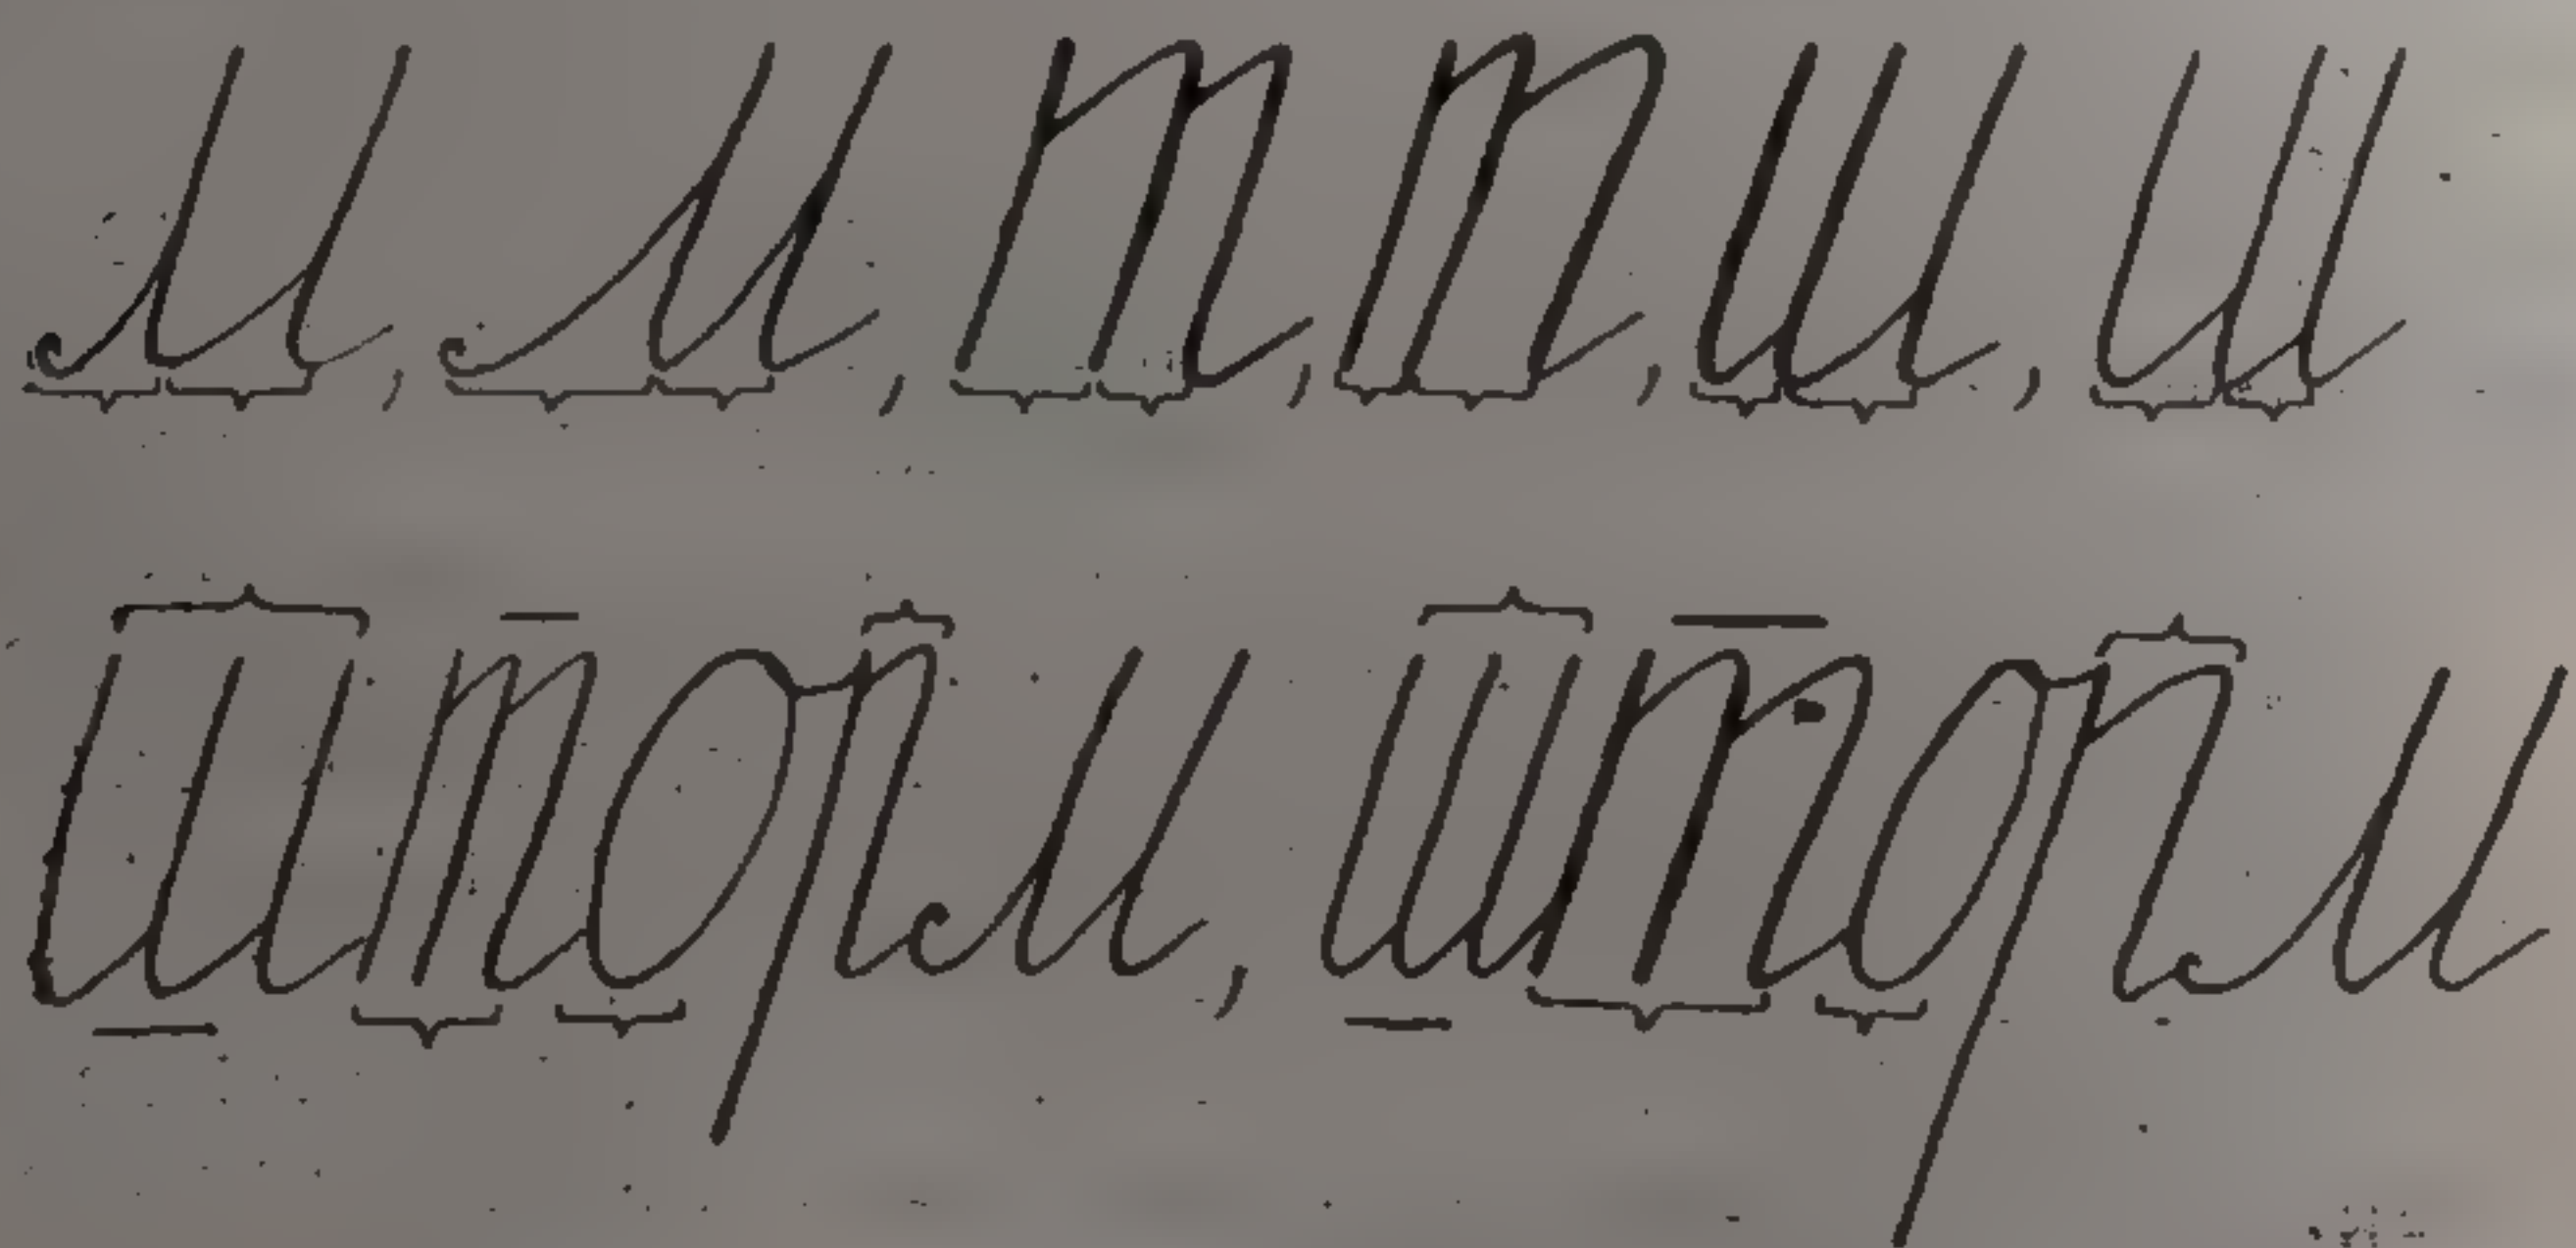 м, м, т, т, ш, ш
шторм, шторм